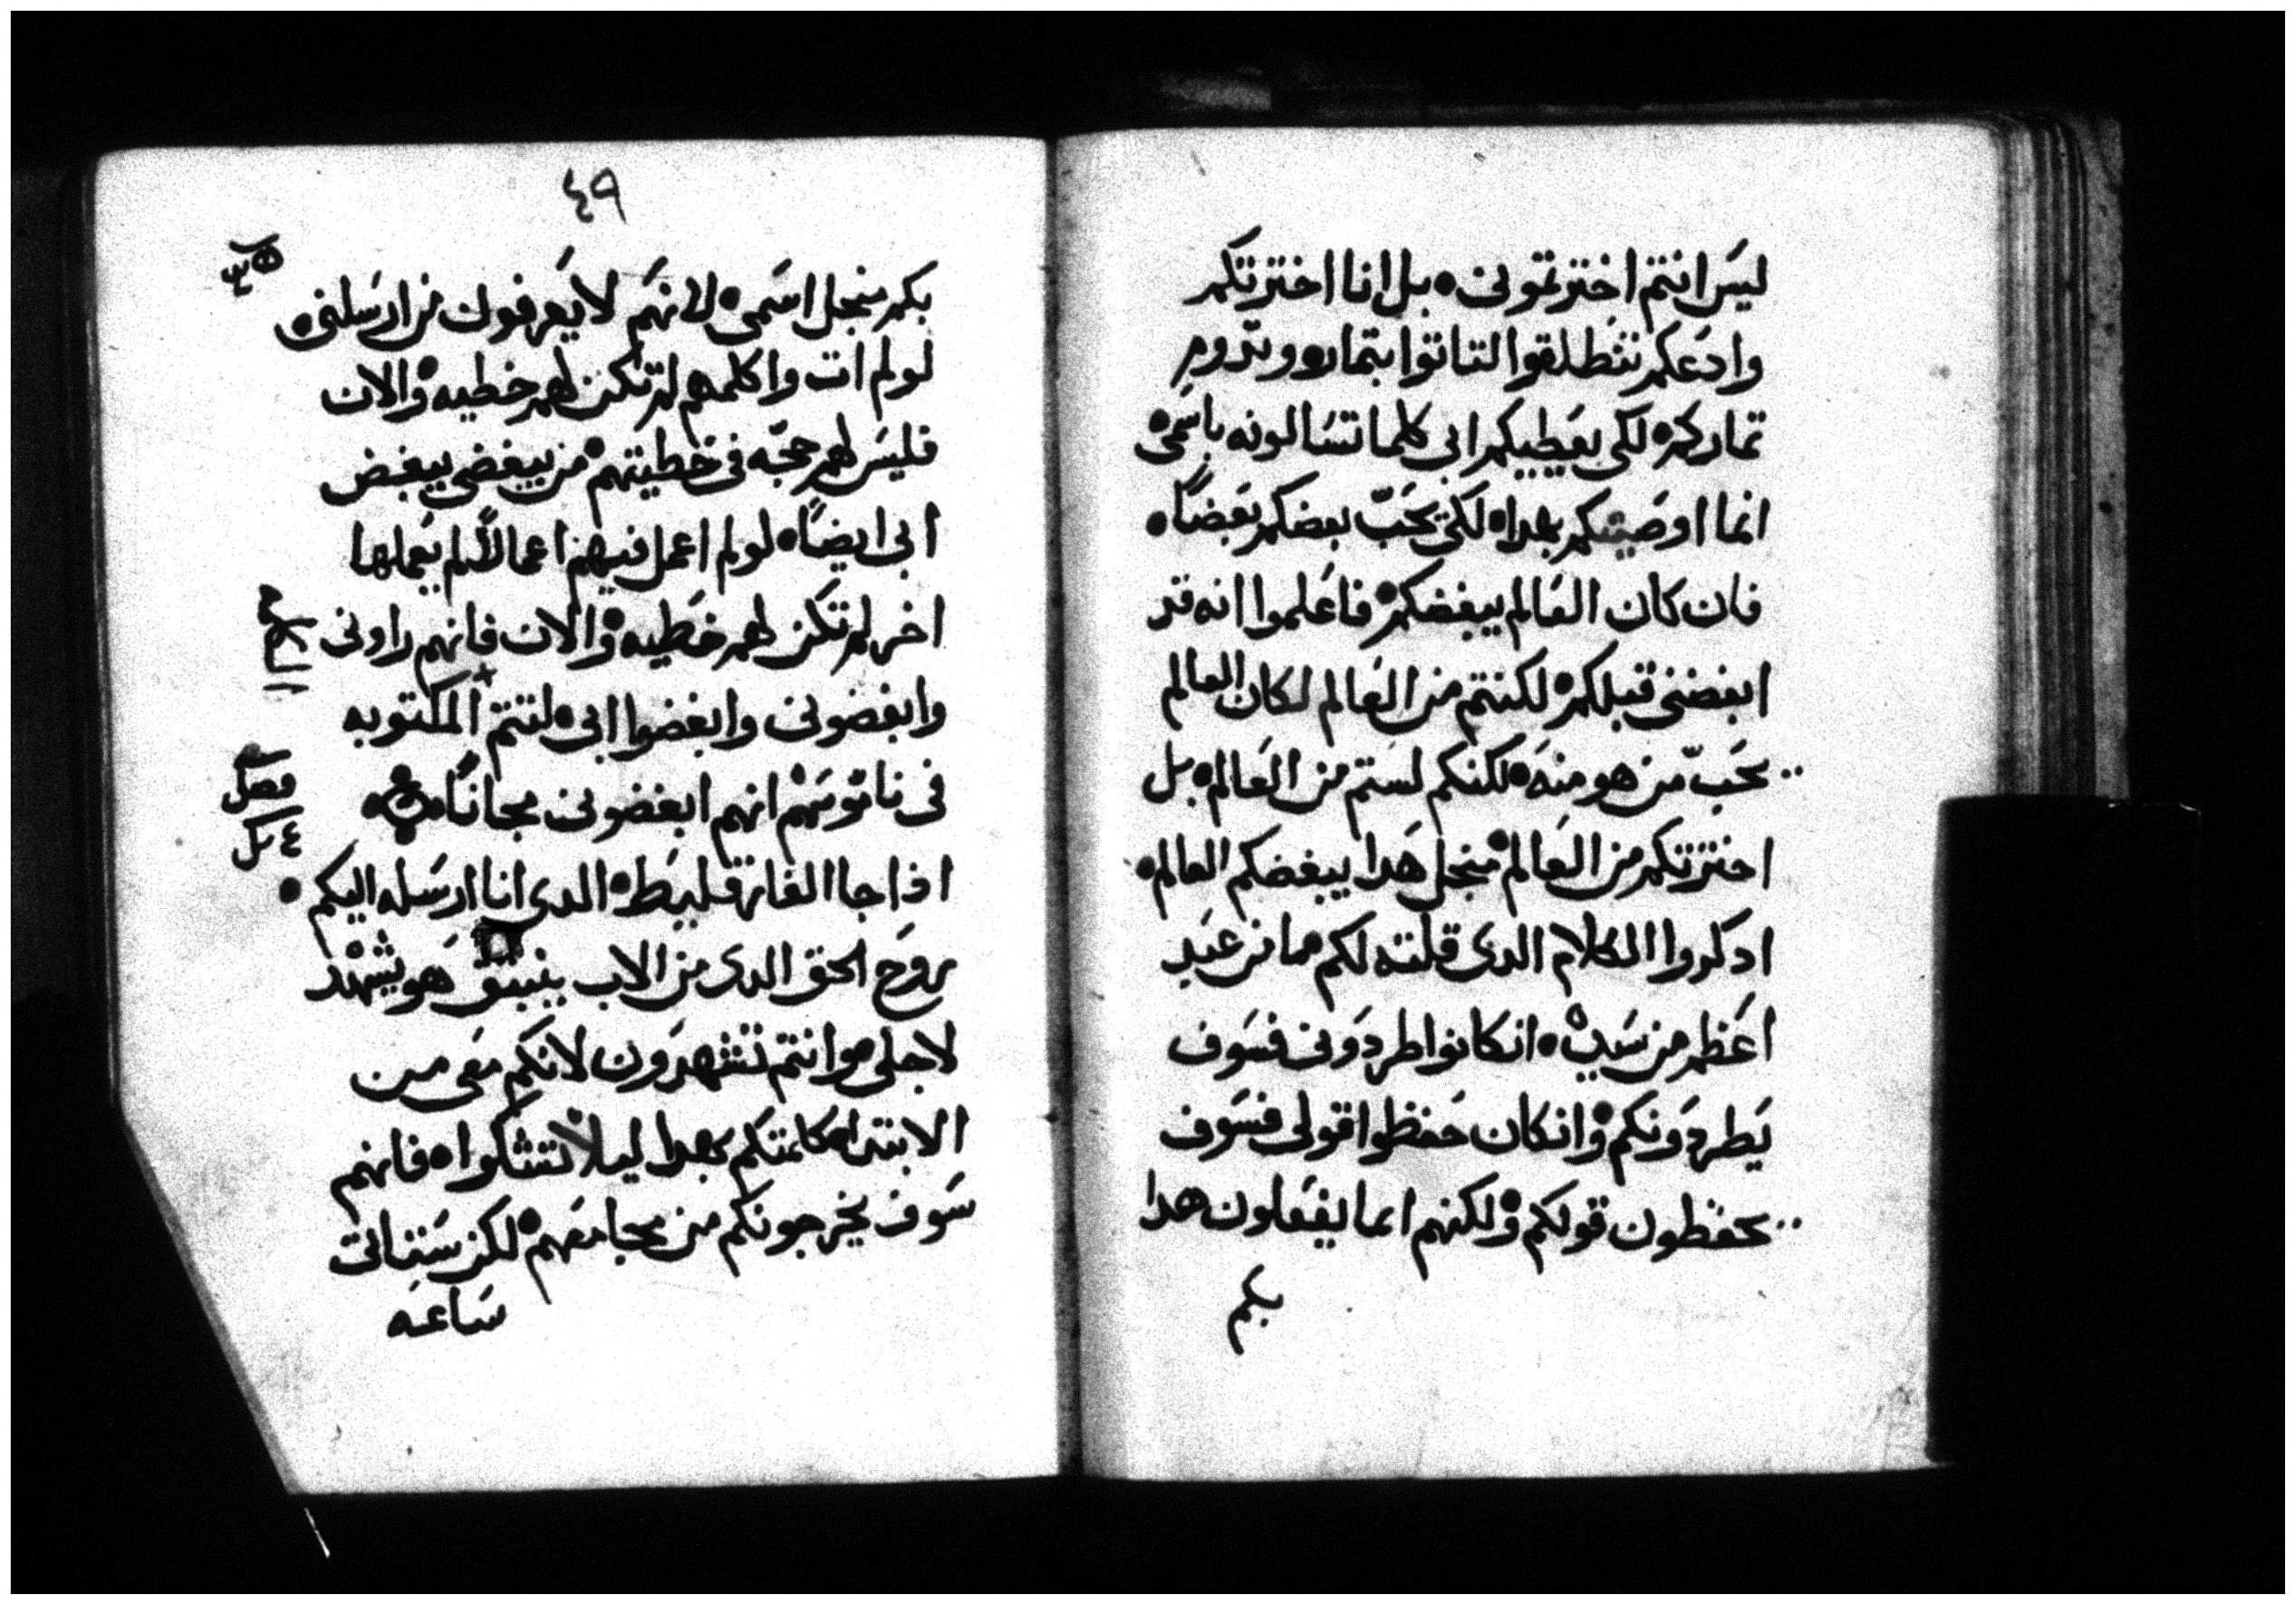 ليس انتم اخترتمونى ۰ بل انا اخترتكم
وادعكم تنطلقوا لتاتوا بتمار ۰ وتدوم
تماركم ۰ لكى يعطيكم ابى كلما تسالونه باسمى
انما اوصيتكم بهدا ۰ لكى يحب بعضكم بعضًا ۰
فان كان العالم يبغضكم ۰ فاعلموا انه قد
ابغضنى قبلكم ۰ لكنتم من العالم لكان العالم
يحبّ من هو منه ۰ لكنكم لستم من العالم ۰ بل
اخترتكم من العالم ۰ منجل هدا يبغضكم العالم ۰
ادكروا الكلام الدى قلته لكم ما من عبد
اعظم من سيده ۰ انكانوا طردونى فسوف
يطردونكم ۰ وانكان حفظوا قولى فسوف
يحفظون قولكم ۰ ولكنهم انما يفعلون هدا
بكم
٤٩
بكم منجل اسمى ۰ لانهم لا يعرفون من ارسلنى ۰
لو لم ات واكلمهم لم تكن لهم خطيه ۰ والان
فليس لهم حجّه فى خطيتهم ۰ من يبغضنى يبغض
ابى ايضًا ۰ لو لم اعمل فيهم اعمالًا لم يعملها
اخر لم تكن لهم خطيه ۰ والان فانهم راونى
وابغضونى وابغضوا ابى ۰ لتتم المكتوبه
فى ناموسهم انهم ابغضونى مجانًا ۰
فصل
اذا جا الفارقليط ۰ الدى انا ارسله اليكم ۰
روح الحق الدى من الاب ينبتق هو يشهد
لاجلى ۰ وانتم تشهدون لانكم معى من
الابتدا ۰ كلمتكم بهدا ليلا تشكوا ۰ فانهم
سوف يخرجونكم من مجامعهم ۰ لكن ستاتى
ساعه